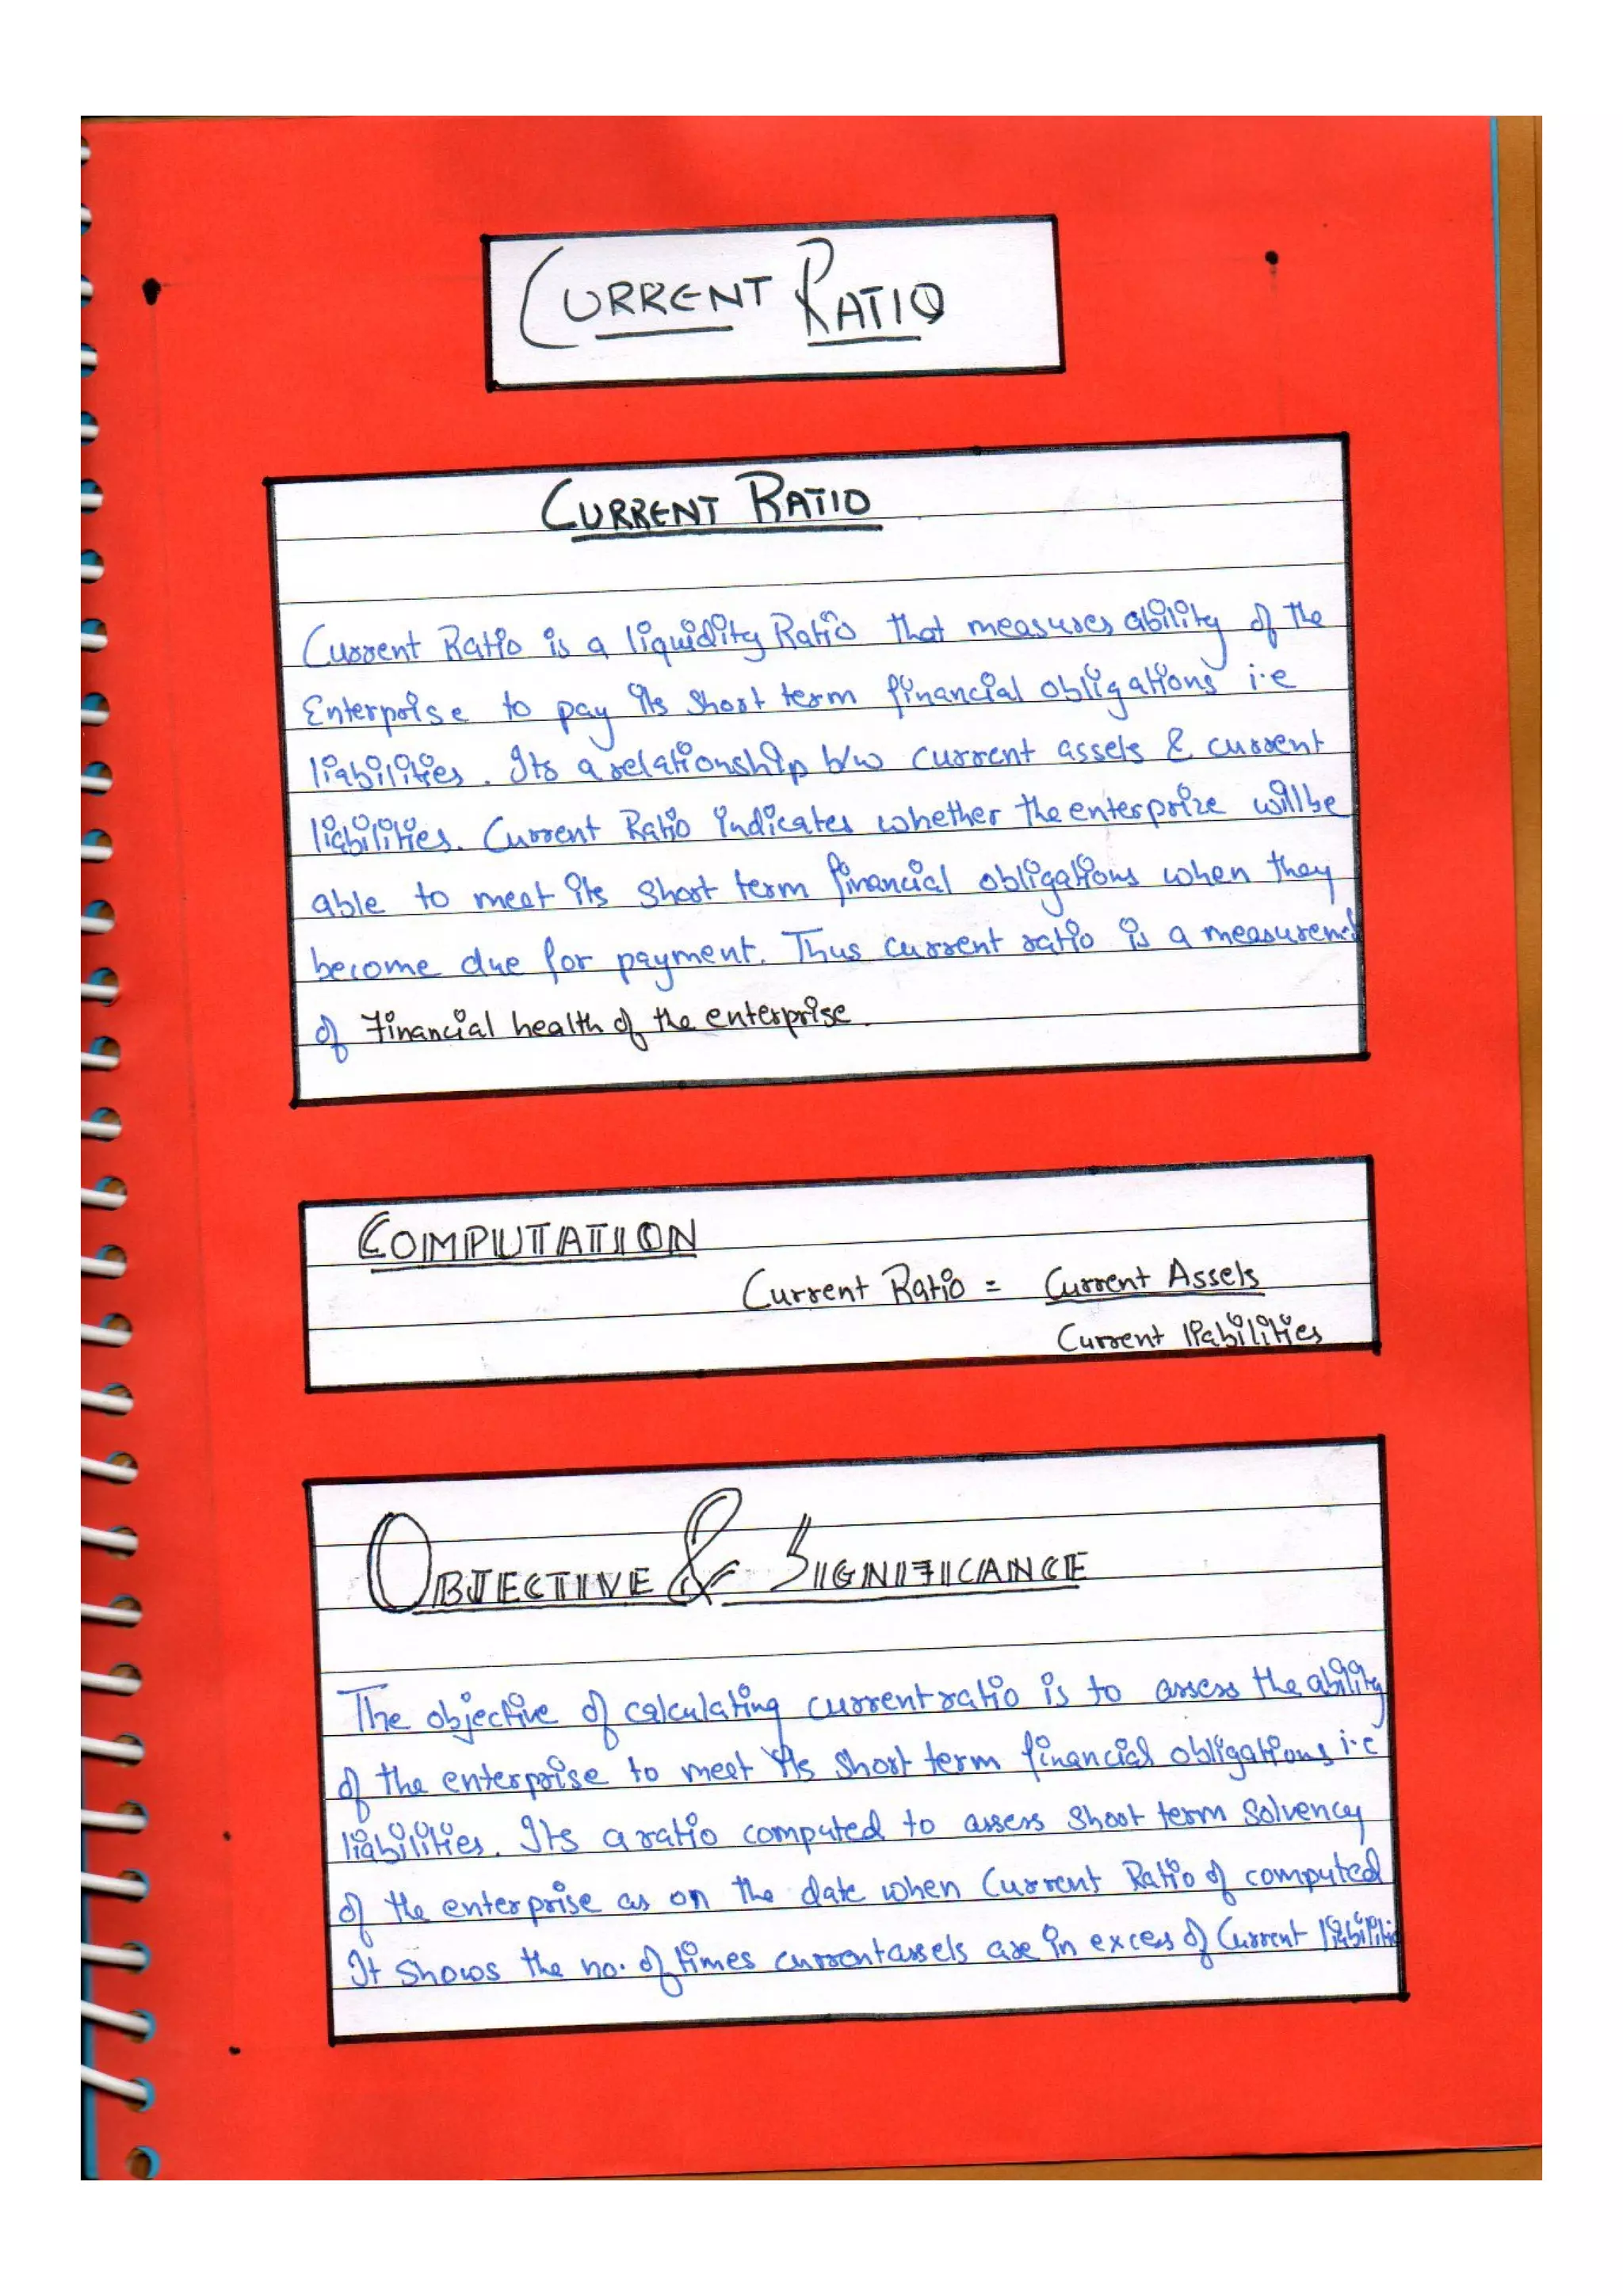 CURRENT RATIO
CURRENT RATIO
Current Ratio is a liquidity Ratio that measures ability of the
Enterprise to pay its short term financial obligations i.e
liabilities. Its a relationship b/w current assets & current
liabilities. Current Ratio indicates whether the enterprize will be
able to meet its short term financial obligations when they
become due for payment. Thus current ratio is a measurement
of Financial health of the enterprise.
COMPUTATION
Current Ratio = Current Assets
Current liabilities
OBJECTIVE & SIGNIFICANCE
The objective of calculating current ratio is to assess the ability
of the enterprise to meet its short term financial obligations i.e
liabilities. Its a ratio computed to assess short term Solvency
of the enterprise as on the date when Current Ratio of computed
It shows the no. of times current assets are in excess of Current liabilities